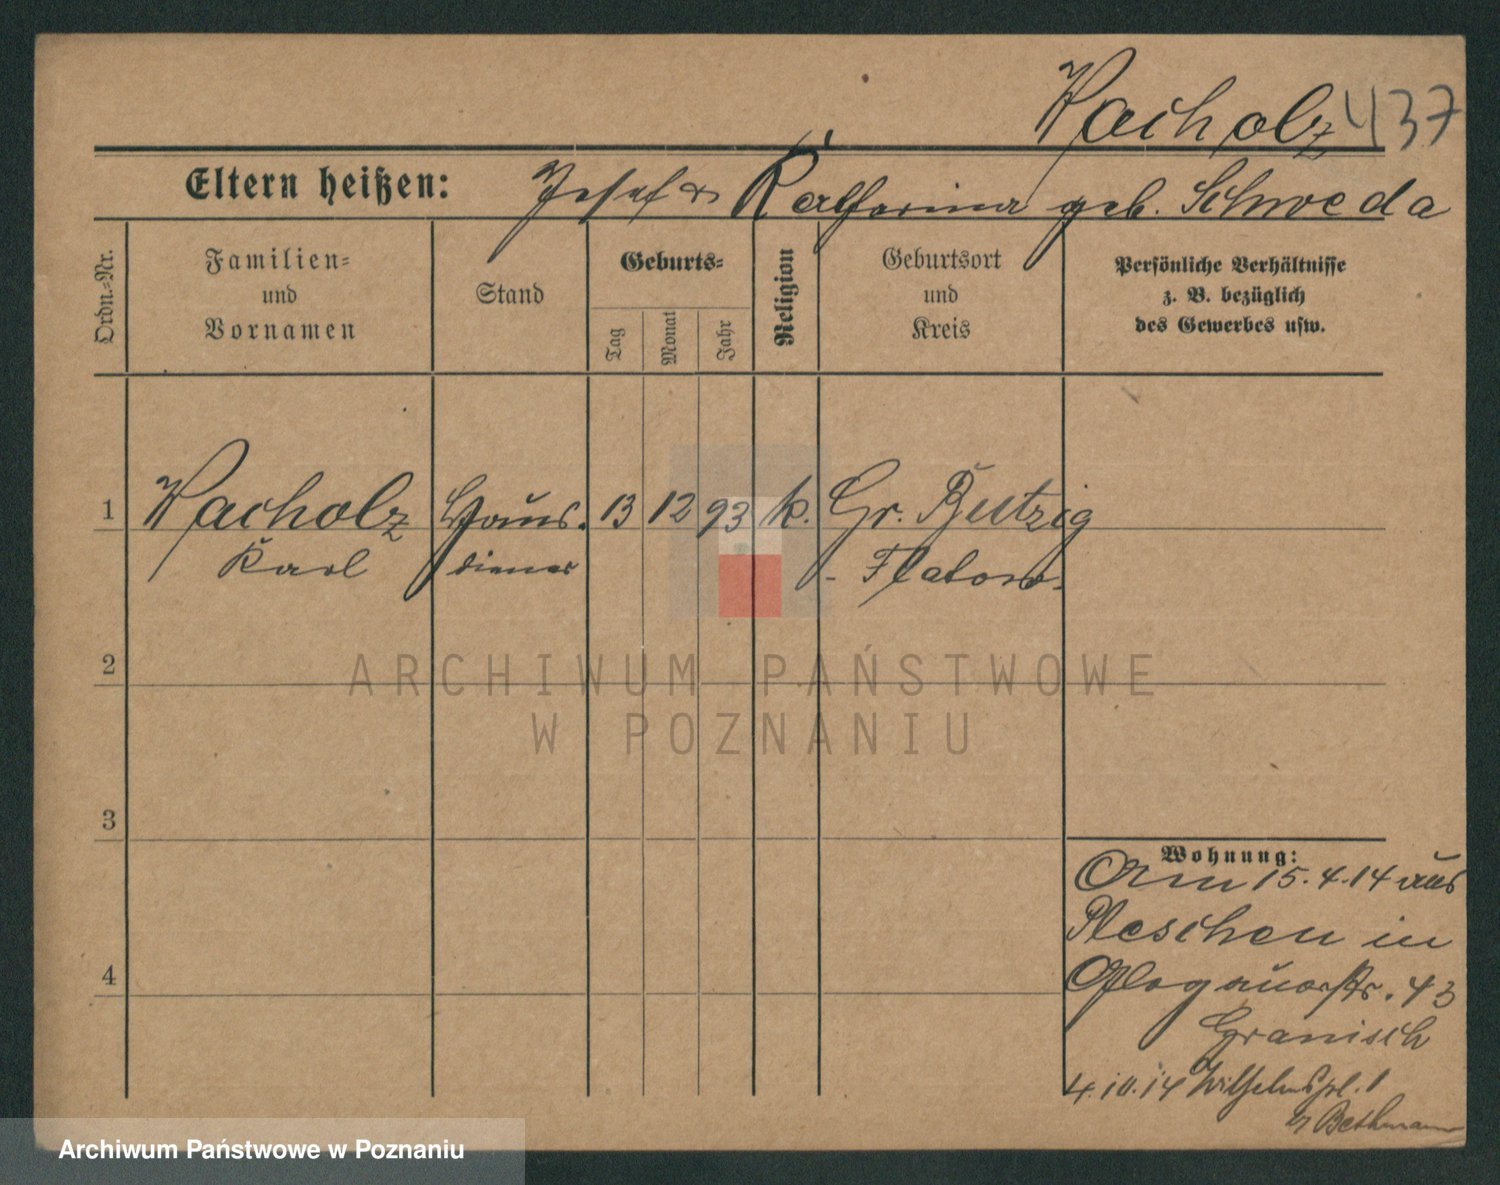 Wacholz 437
Eltern heißen: Josef & Katharina geb. Schweda
Ordn.=Nr.
Familien=
und
Vornamen
Stand
Geburts=
Tag
Monat
Jahr
Religion
Geburtsort
und
Kreis
Persönliche Verhältnisse
z. B. bezüglich
des Gewerbes usw.
1 Wacholz Haus- 13 12 93 k. Gr. Butzig
Karl diener - Flatow-
2
3
4
Wohnung:
Am 15.4.14 aus
Pleschen in
Glogauerstr. 43
Granisch
4.10.14 Wilhelmspl. 1
Bethmann
ARCHIWUM PAŃSTWOWE
W POZNANIU
Archiwum Państwowe w Poznaniu